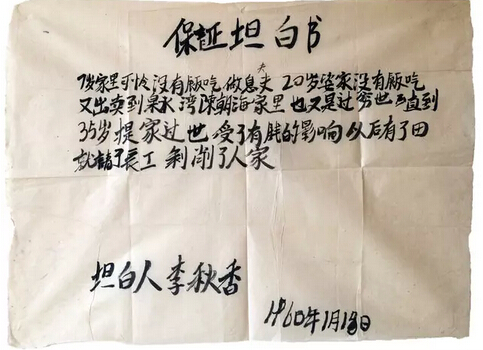 保证坦白书
7岁家里可怜没有飯吃 做息夫 20岁婆家没有飯吃
又出卖到 泉水湾陳朝海家里 也又是过穷世 直到
35岁 提家过世 受了有胜的影响 以后有了田
就請了長工 剝削了人家
坦白人 李秋香
1960年1月13日